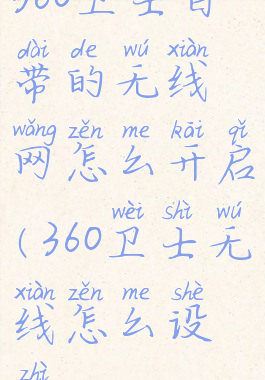 360卫士自
dài de wú xiàn
带的无线
wǎng zěn me kāi qǐ
网怎么开启
wèi shì wú
(360卫士无
xiàn zěn me shè
线怎么设
zhì